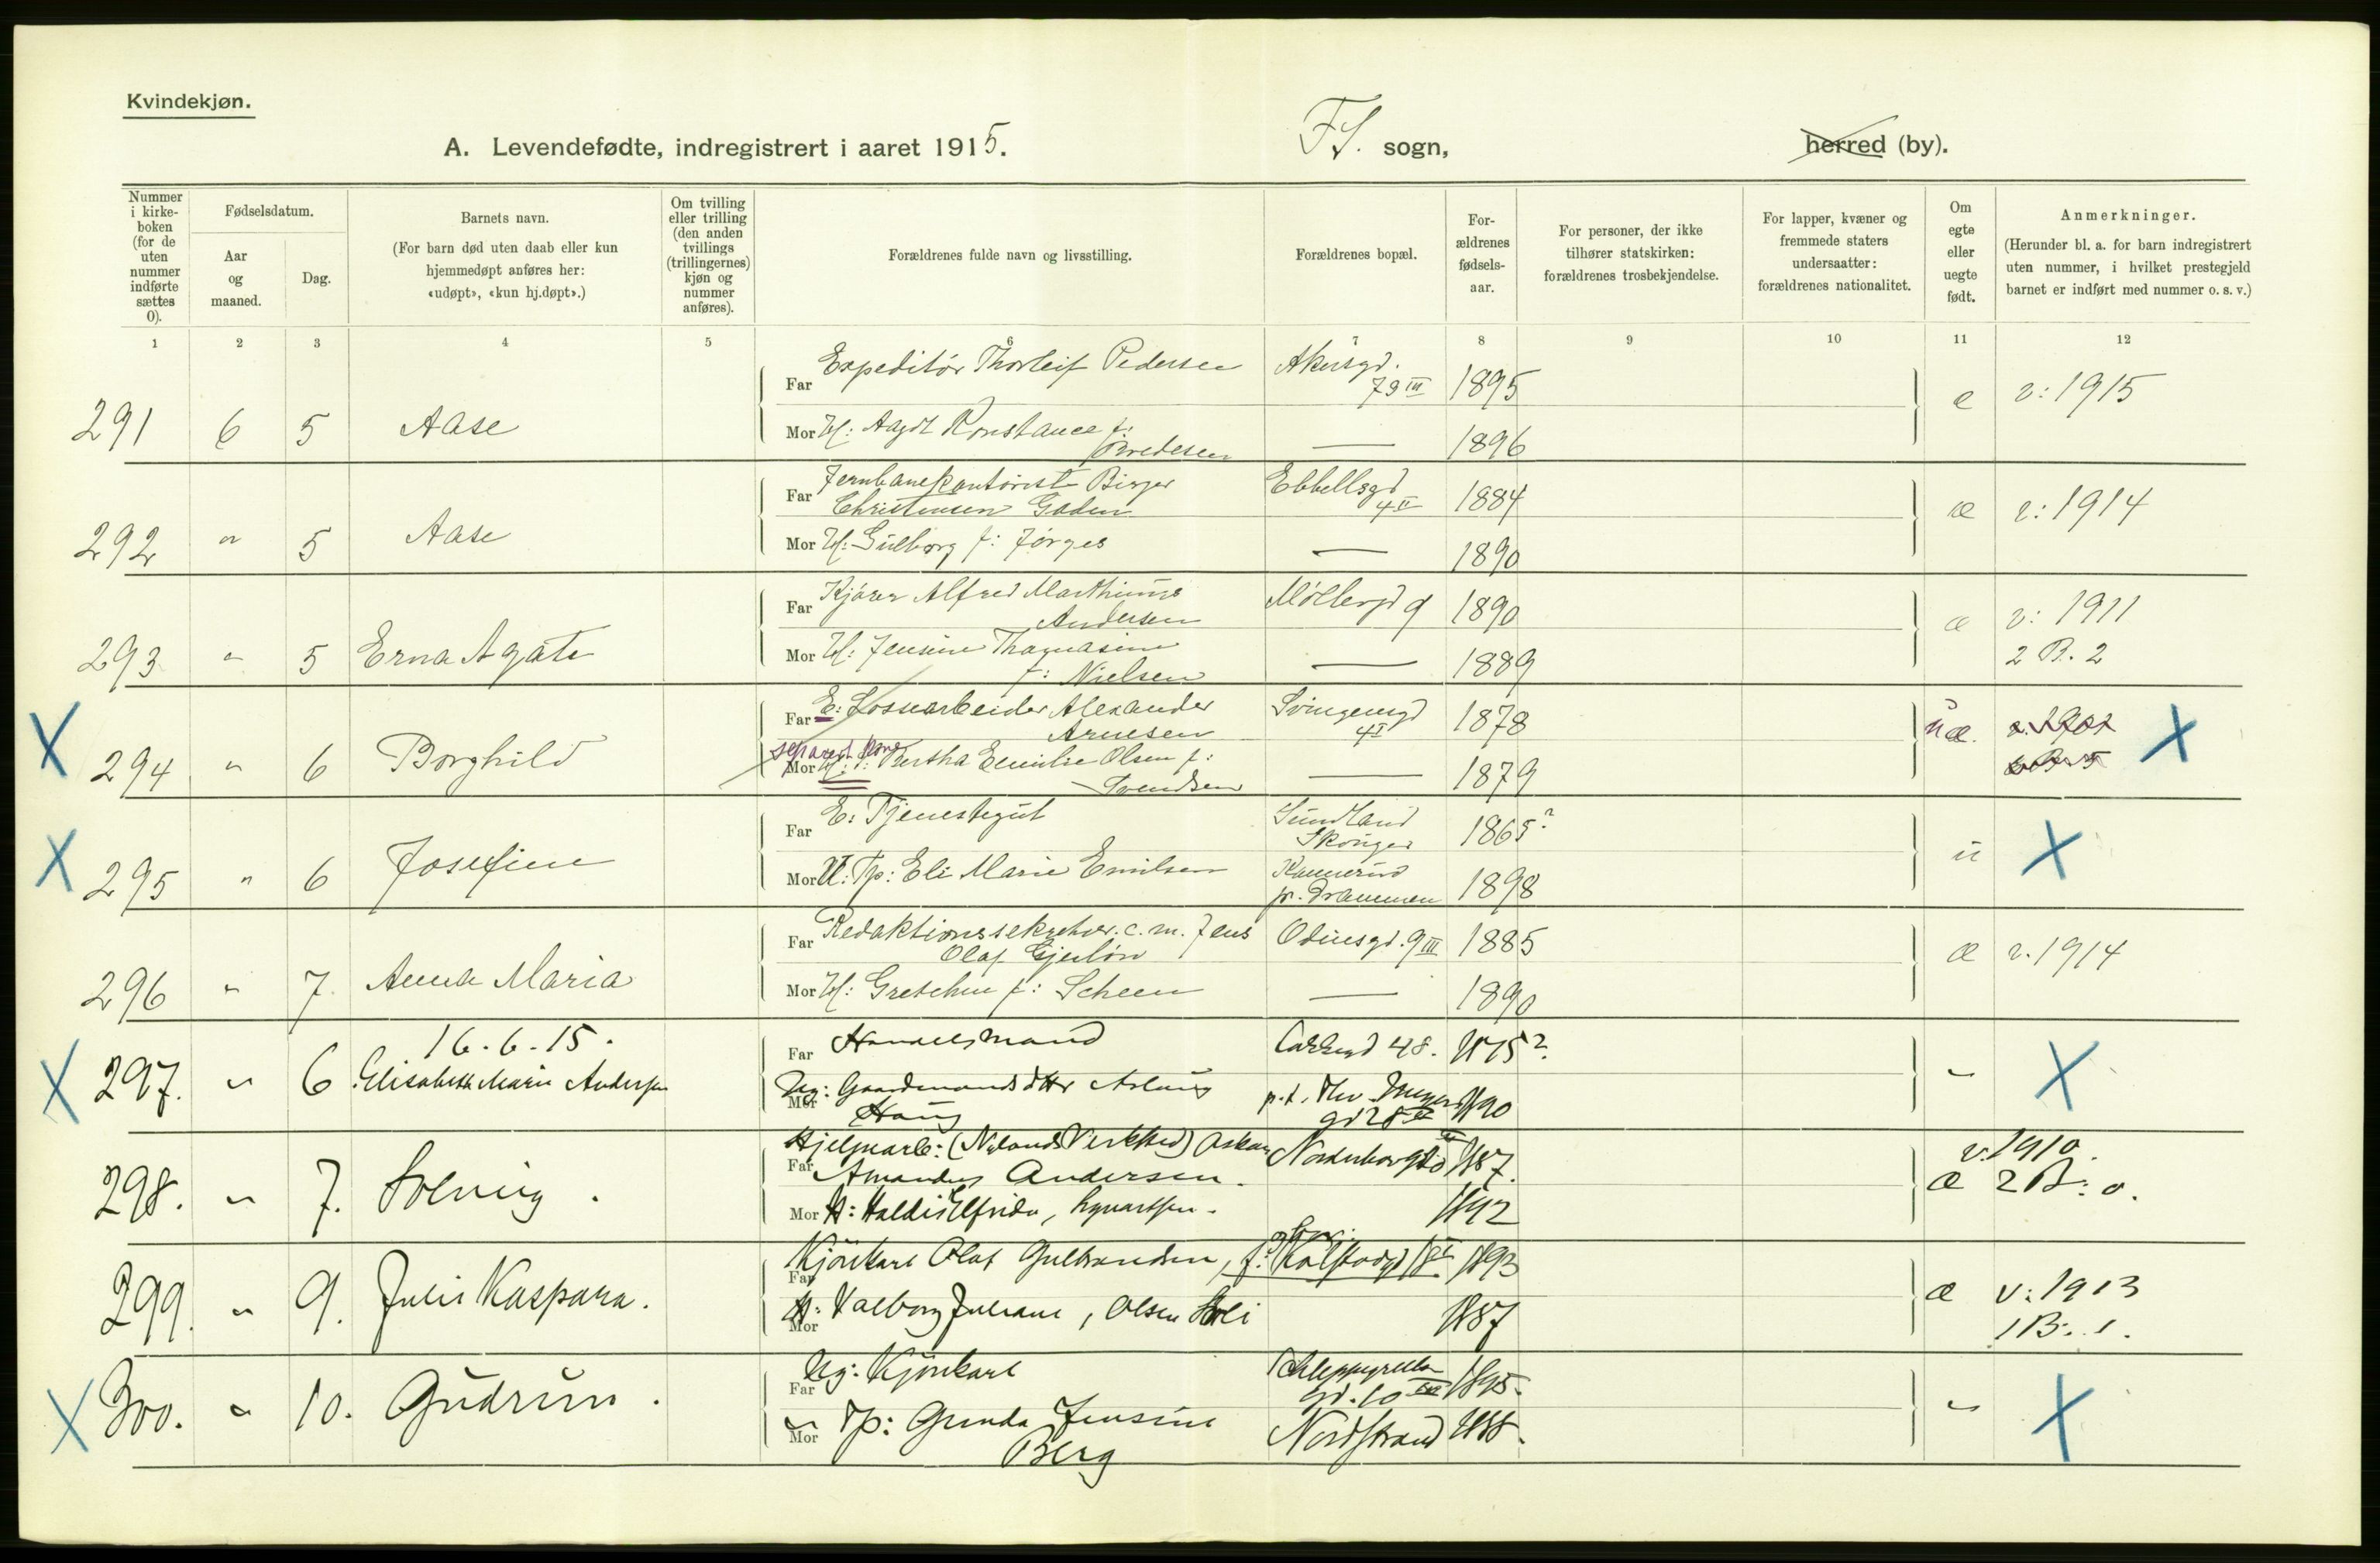 Kvindekjøn.
A. Levendefødte, indregistrert i aaret 1915.
FS. sogn,
herred (by).
Nummer i kirkeboken (for de uten nummer indførte sættes 0).
Fødselsdatum.
Aar og maaned.
Dag.
Barnets navn.
(For barn død uten daab eller kun hjemmedøpt anføres her: «udøpt», «kun hj.døpt».)
Om tvilling eller trilling (den anden tvillings (trillingernes) kjøn og nummer anføres).
Forældrenes fulde navn og livsstilling.
Forældrenes bopæl.
For-ældrenes fødsels-aar.
For personer, der ikke tilhører statskirken: forældrenes trosbekjendelse.
For lapper, kvæner og fremmede staters undersaatter: forældrenes nationalitet.
Om egte eller uegte født.
Anmerkninger.
(Herunder bl. a. for barn indregistrert uten nummer, i hvilket prestegjeld barnet er indført med nummer o. s. v.)
1 2 3 4 5 6 7 8 9 10 11 12
291 6 5 Aase
Far Expeditør Thorleif Pedersen Akersgd. 79 III 1895
Mor H: Agot Konstance f: Bredesen — 1896
e v: 1915
292 " 5 Aase
Far Jernbanekontorist Birger Christensen Gaden Ebbellsgd 4 II 1884
Mor H: Gulborg f: Jørges — 1890
æ v: 1914
293 " 5 Erna Agate
Far Kjører Alfred Marthinus Andersen Møllergd 9 1890
Mor H: Jensine Thomasine f: Nielsen — 1889
æ v: 1911
2 B. 2
X 294 " 6 Borghild
Far E: Løsearbeider Alexander Arnesen Svingengd 4 I 1878
separert kone
Mor H: Bertha Emilie Olsen f: Svendsen — 1879
uæ. X
X 295 " 6 Josefine
Far E: Tjenestegut Sundland Skouger 1865?
Mor U: Tp: Eli Marie Emilsen pr. Drammen 1898
u X
296 " 7 Anna Maria
Far Redaktionssekretær. c. m. Jens Olaf Gjerløw Odinsgd. 9 III 1885
Mor H: Gretchen f: Scheen — 1890
æ v. 1914
16.6.15.
X 297. " 6 Elisabeth Marie Andersen
Far Handelsmand 48. 1875?
Mor Ug: Gaardmandsdtter Aslaug Haug p.t. Thv. Meyers gd 28 1890
" X
298. " 7. Solveig.
Far Hjelpearb: (Nylands Verksted) Oskar Amandus Andersen. 1887.
Mor H: Haldis Elfrida, 1892
v. 1910.
æ 2 B: 0.
299. " 9. Julie Kaspara.
Far Kjørekarl Olaf Gulbrandsen, 1893
Mor H: Valborg Juliane, Olsen Holi 1887
æ v: 1913
1 B: 1.
X 300. " 10. Gudrun.
Far Ug: Kjørekarl Schleppegrells gd. 10 III 1895.
Mor " Tp: Gunda Jensine Berg Nordstrand 1888.
" X